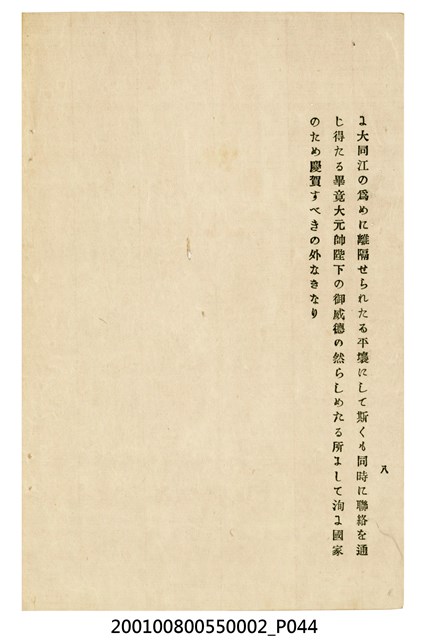 八
よ大同江の爲めに離隔せられたる平壤にして斯くも同時に聯絡を通
し得たる畢竟大元帥陛下の御威德の然らしめたる所よして洵よ國家
のため慶賀すべきの外なきなり
200100800550002_P044